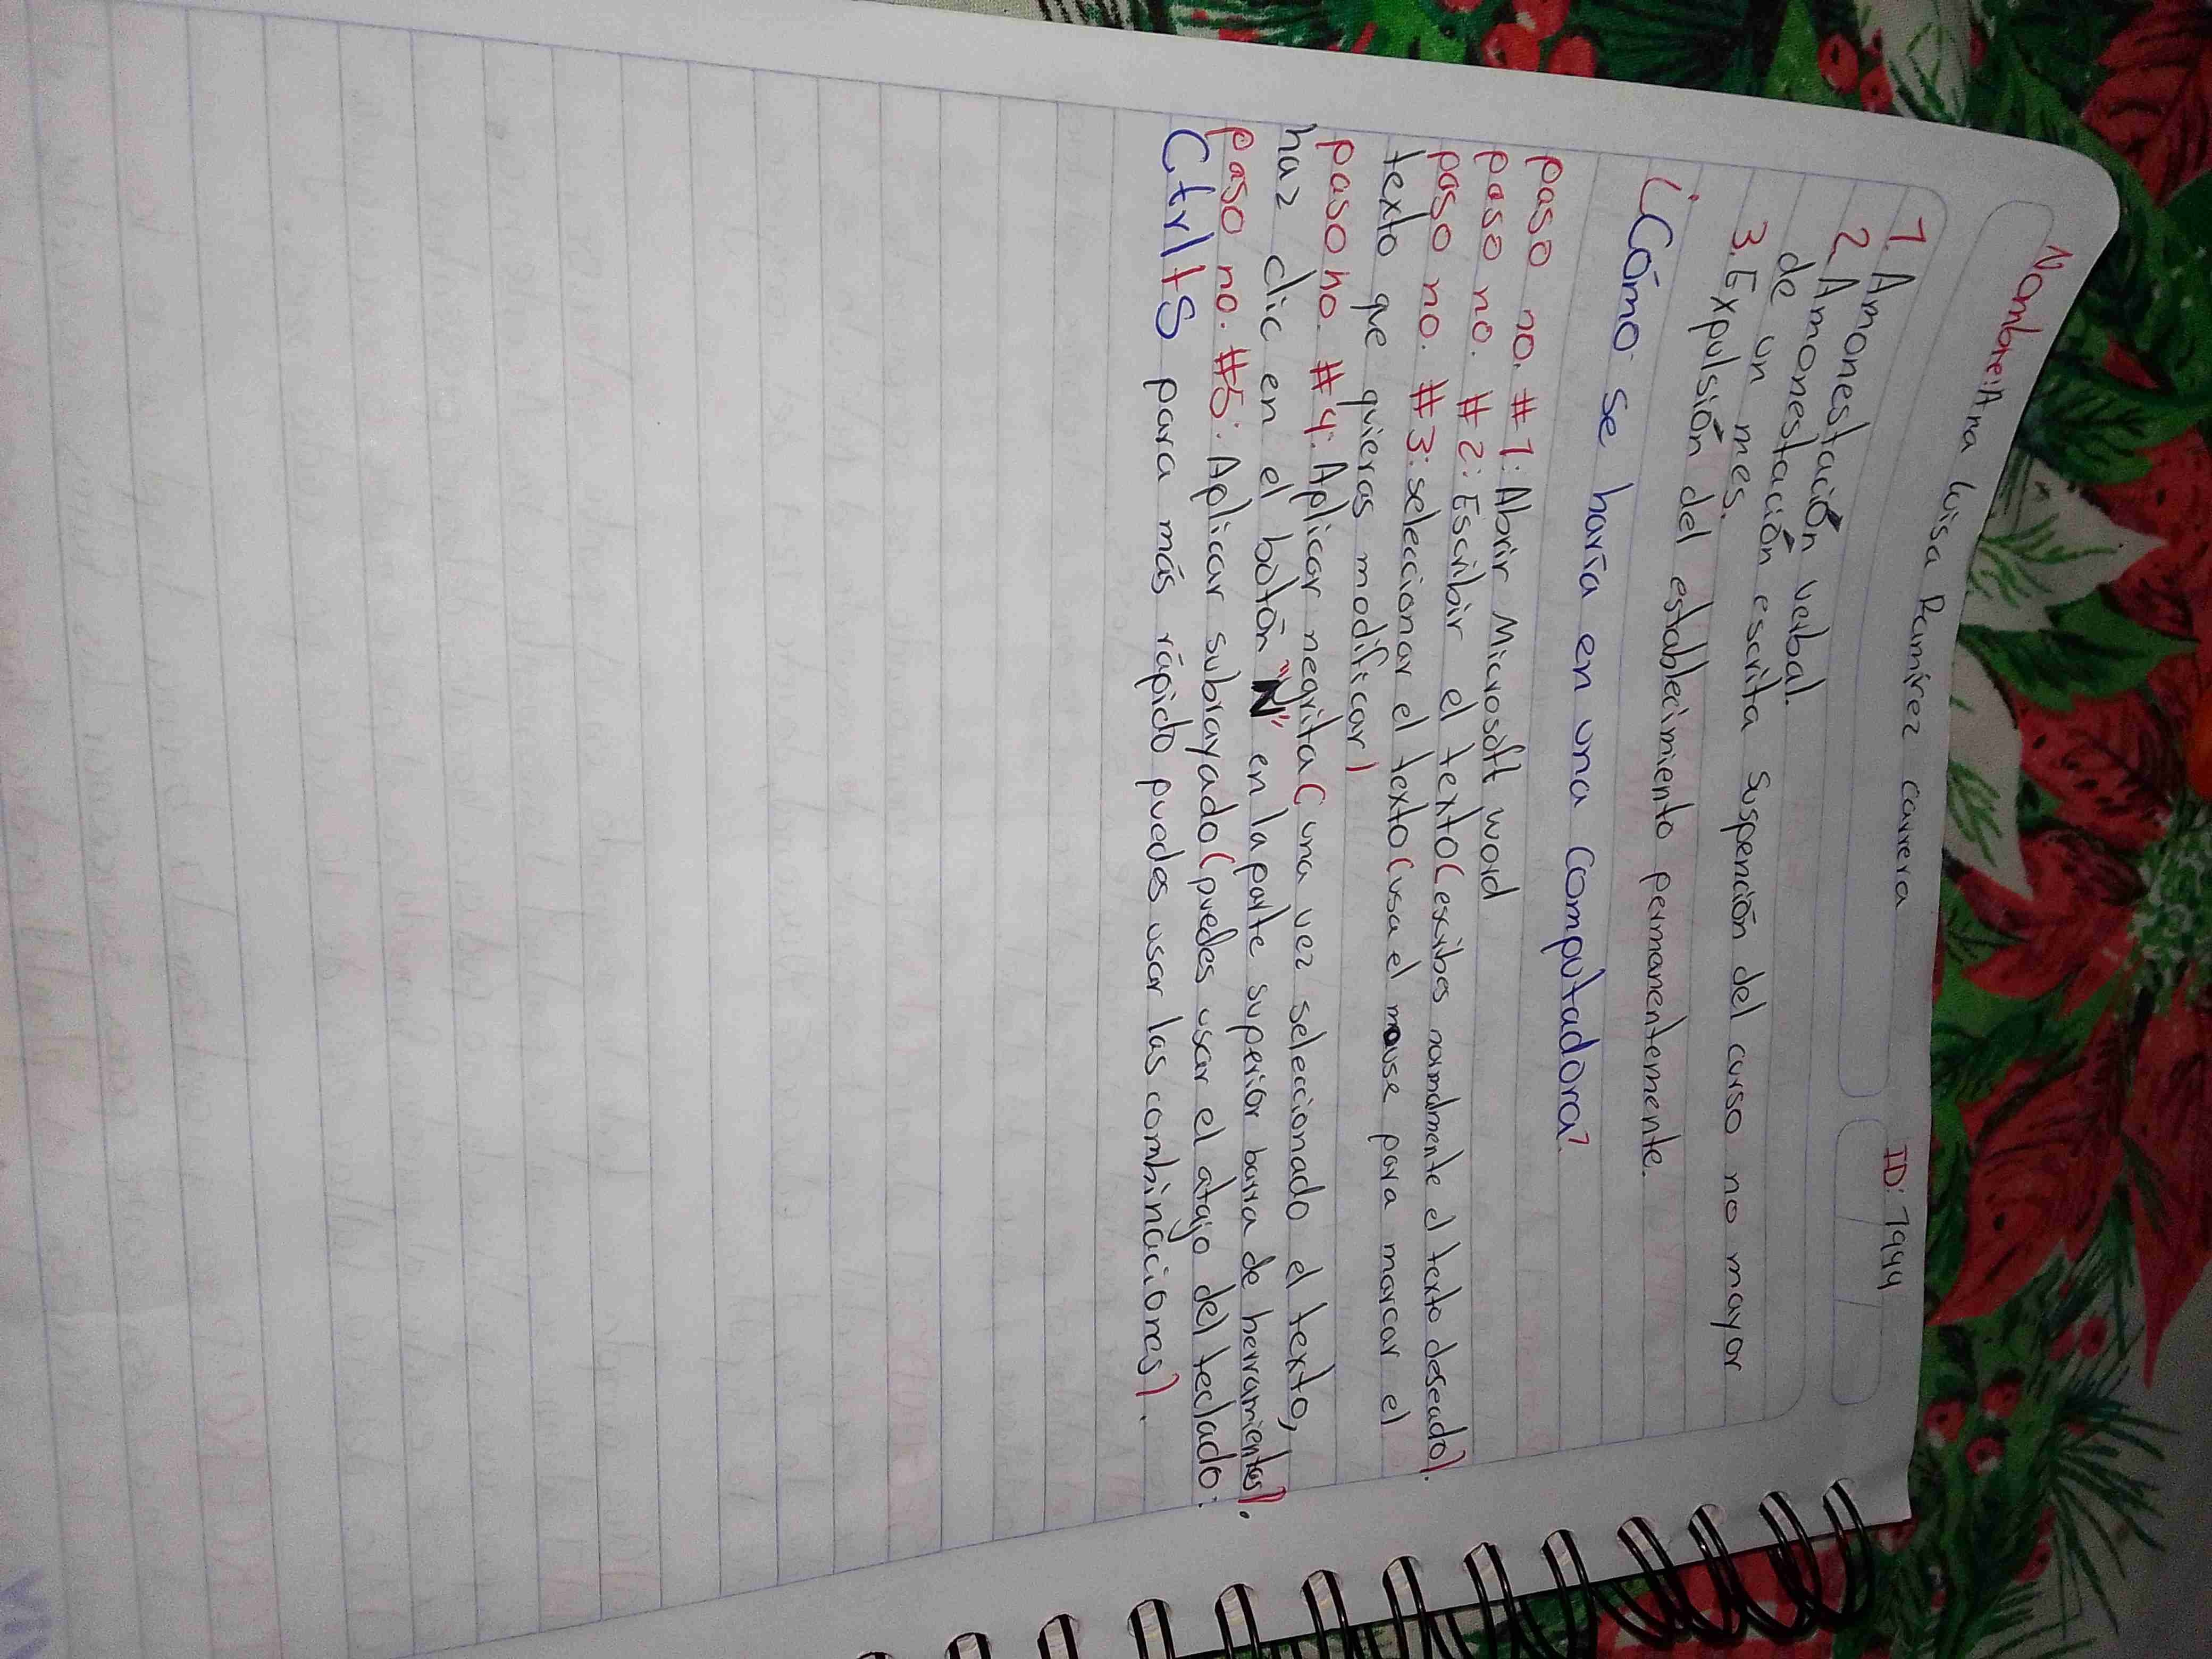 Nombre: Ana Luisa Ramírez carrera ID: 1944
1 Amonestación verbal.
2 Amonestación escrita suspención del curso no mayor
de un mes.
3. Expulsión del establecimiento permanentemente.
¿Cómo se haría en una computadora?
paso no. #1: Abrir Microsoft word
paso no. #2: Escribir el texto (escribes normalmente el texto deseado).
paso no. #3: seleccionar el texto (usa el mouse para marcar el
texto que quieras modificar)
paso no. #4: Aplicar negrita (una vez seleccionado el texto,
haz clic en el botón "N" en la parte superior barra de herramientas).
paso no. #5: Aplicar subrayado (puedes usar el atajo del teclado:
Ctrl+S para más rápido puedes usar las combinaciones).